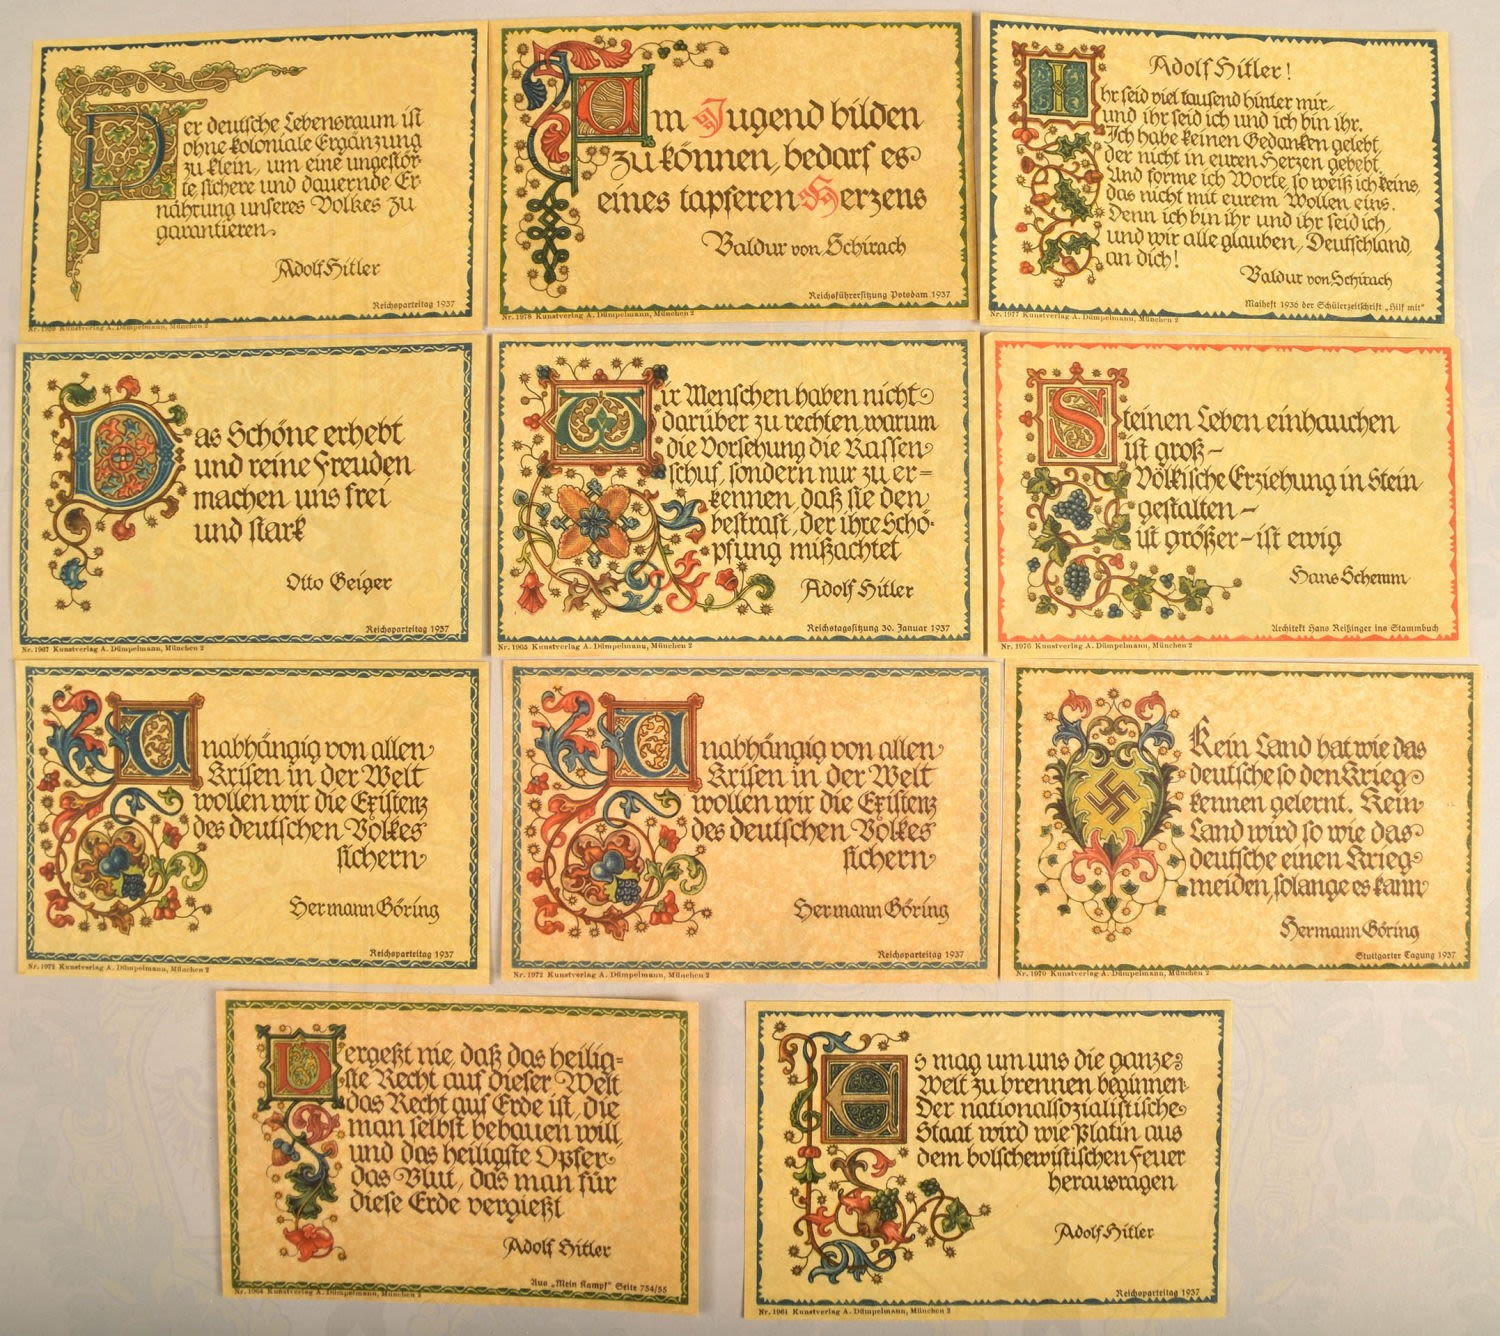 Der deutsche Lebensraum ist
ohne koloniale Ergänzung
zu klein, um eine ungestör-
te sichere und dauernde Er-
nährung unseres Volkes zu
garantieren.
Adolf Hitler
Reichsparteitag 1937
Kunstverlag A. Dümpelmann, München 2
Um Jugend bilden
zu können, bedarf es
eines tapferen Herzens
Baldur von Schirach
Reichsführersitzung Potsdam 1937
Nr. 1978 Kunstverlag A. Dümpelmann, München 2
Adolf Hitler!
Ihr seid viel tausend hinter mir,
und ihr seid ich und ich bin ihr.
Ich habe keinen Gedanken gelebt,
der nicht in euren Herzen gebebt.
Und forme ich Worte, so weiß ich keins,
das nicht mit eurem Wollen eins.
Denn ich bin ihr und ihr seid ich,
und wir alle glauben, Deutschland,
an dich!
Baldur von Schirach
Maiheft 1936 der Schülerzeitschrift „Hilf mit"
Nr. 1977 Kunstverlag A. Dümpelmann, München 2
Das Schöne erhebt
und reine Freuden
machen uns frei
und stark
Otto Geiger
Reichsparteitag 1937
Nr. 1967 Kunstverlag A. Dümpelmann, München 2
Wir Menschen haben nicht
darüber zu rechten warum
die Vorsehung die Rassen
schuf, sondern nur zu er=
kennen, daß sie den
bestraft, der ihre Schö-
pfung mißachtet
Adolf Hitler
Reichstagssitzung 30. Januar 1937
Nr. 1965 Kunstverlag A. Dümpelmann, München 2
Steinen Leben einhauchen
ist groß –
Völkische Erziehung in Stein
gestalten –
ist größer – ist ewig
Hans Schemm
Architekt Hans Reißinger ins Stammbuch
Nr. 1976 Kunstverlag A. Dümpelmann, München 2
Unabhängig von allen
Krisen in der Welt
wollen wir die Existenz
des deutschen Volkes
sichern
Hermann Göring
Reichsparteitag 1937
Nr. 1972 Kunstverlag A. Dümpelmann, München 2
Unabhängig von allen
Krisen in der Welt
wollen wir die Existenz
des deutschen Volkes
sichern
Hermann Göring
Reichsparteitag 1937
Nr. 1972 Kunstverlag A. Dümpelmann, München 2
Kein Land hat wie das
deutsche so den Krieg
kennen gelernt. Kein
Land wird so wie das
deutsche einen Krieg
meiden, solange es kann
Hermann Göring
Stuttgarter Tagung 1937
Nr. 1970 Kunstverlag A. Dümpelmann, München 2
Vergeßt nie, daß das heilig=
ste Recht auf dieser Welt
das Recht auf Erde ist, die
man selbst bebauen will,
und das heiligste Opfer
das Blut, das man für
diese Erde vergießt
Adolf Hitler
Aus „Mein Kampf" Seite 754/55
Nr. 1964 Kunstverlag A. Dümpelmann, München 2
Es mag um uns die ganze
Welt zu brennen beginnen
Der nationalsozialistische
Staat wird wie Platin aus
dem bolschewistischen Feuer
herausragen
Adolf Hitler
Reichsparteitag 1937
Nr. 1961 Kunstverlag A. Dümpelmann, München 2